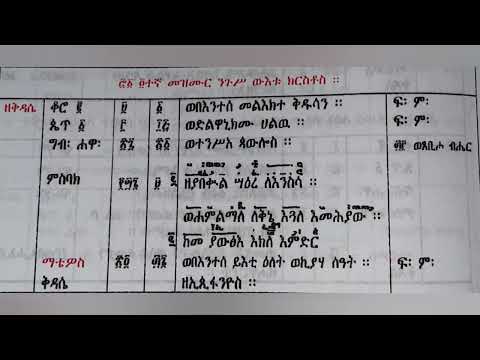 መዝሙር ንጉሥ ውእቱ ክርስቶስ ።
ዘቅዳሴ ቆሮ ፪ ፱ ፩ ወበእንተሰ መልእክተ ቅዱሳን ። ፍ፡ ም፡
ጴጥ ፩ ፫ ፲፭ ወድልዋኒክሙ ሀልዉ ። ፍ፡ ም፡
ግብ፡ ሐዋ፡ ፳፯ ፳፩ ወተንሥአ ጳውሎስ ። ፴፱ ወጸቢሖ ብሔር
ምስባክ ፻፵፮ ዘያበቍል ሣዕረ ለእንስሳ ።
ወሐመልማለ ለቅኔ እጓለ እመሕያው ።
ከመ ያውፅእ እክለ እምድር
ማቴዎስ ፳፬ ፴፮ ወበእንተሰ ይእቲ ዕለት ወኪያሃ ሰዓት ። ፍ፡ ም፡
ቅዳሴ ዘኢጲፋንዮስ ።